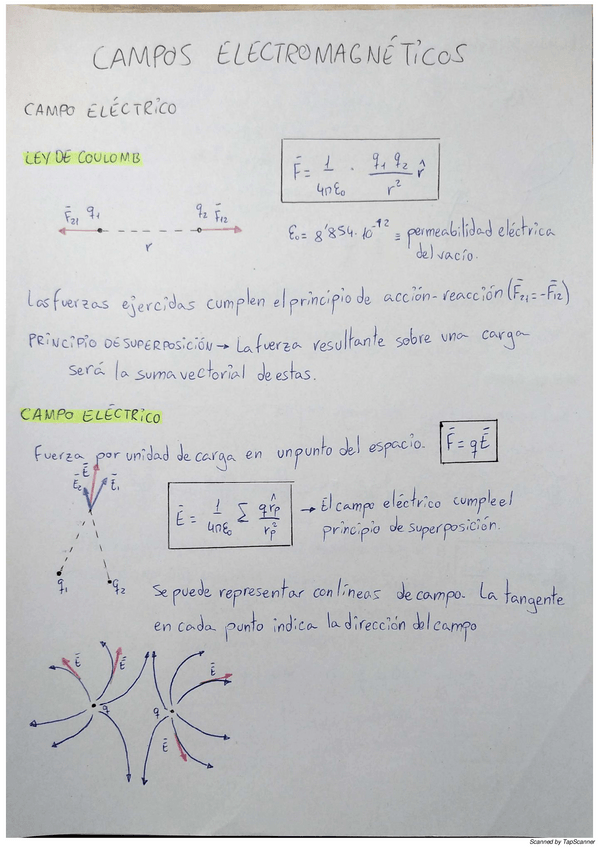 CAMPOS ELECTROMAGNÉTICOS
CAMPO ELÉCTRICO
LEY DE COULOMB
F̄ = 1/4πε₀ · q₁ q₂/r² r̂
F̄₂₁ q₁ q₂ F̄₁₂
r
ε₀ = 8'854·10⁻¹² ≡ permeabilidad eléctrica
del vacío.
Las fuerzas ejercidas cumplen el principio de acción-reacción (F̄₂₁ = -F̄₁₂)
PRINCIPIO DE SUPERPOSICIÓN → La fuerza resultante sobre una carga
será la suma vectorial de estas.
CAMPO ELÉCTRICO
Fuerza por unidad de carga en un punto del espacio. F̄ = qĒ
Ē
Ē₂ Ē₁
Ē = 1/4πε₀ Σ q r̂p/rp² → El campo eléctrico cumple el
principio de superposición.
q₁ q₂
Se puede representar con líneas de campo. La tangente
en cada punto indica la dirección del campo
Ē Ē Ē
q q
Ē
Scanned by TapScanner